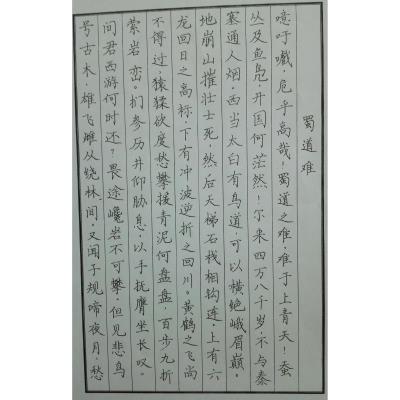 蜀道难
噫吁嚱，危乎高哉！蜀道之难，难于上青天！蚕
丛及鱼凫，开国何茫然！尔来四万八千岁，不与秦
塞通人烟。西当太白有鸟道，可以横绝峨眉巅。
地崩山摧壮士死，然后天梯石栈相钩连。上有六
龙回日之高标，下有冲波逆折之回川。黄鹤之飞尚
不得过，猿猱欲度愁攀援。青泥何盘盘，百步九折
萦岩峦。扪参历井仰胁息，以手抚膺坐长叹。
问君西游何时还？畏途巉岩不可攀。但见悲鸟
号古木，雄飞雌从绕林间。又闻子规啼夜月，愁